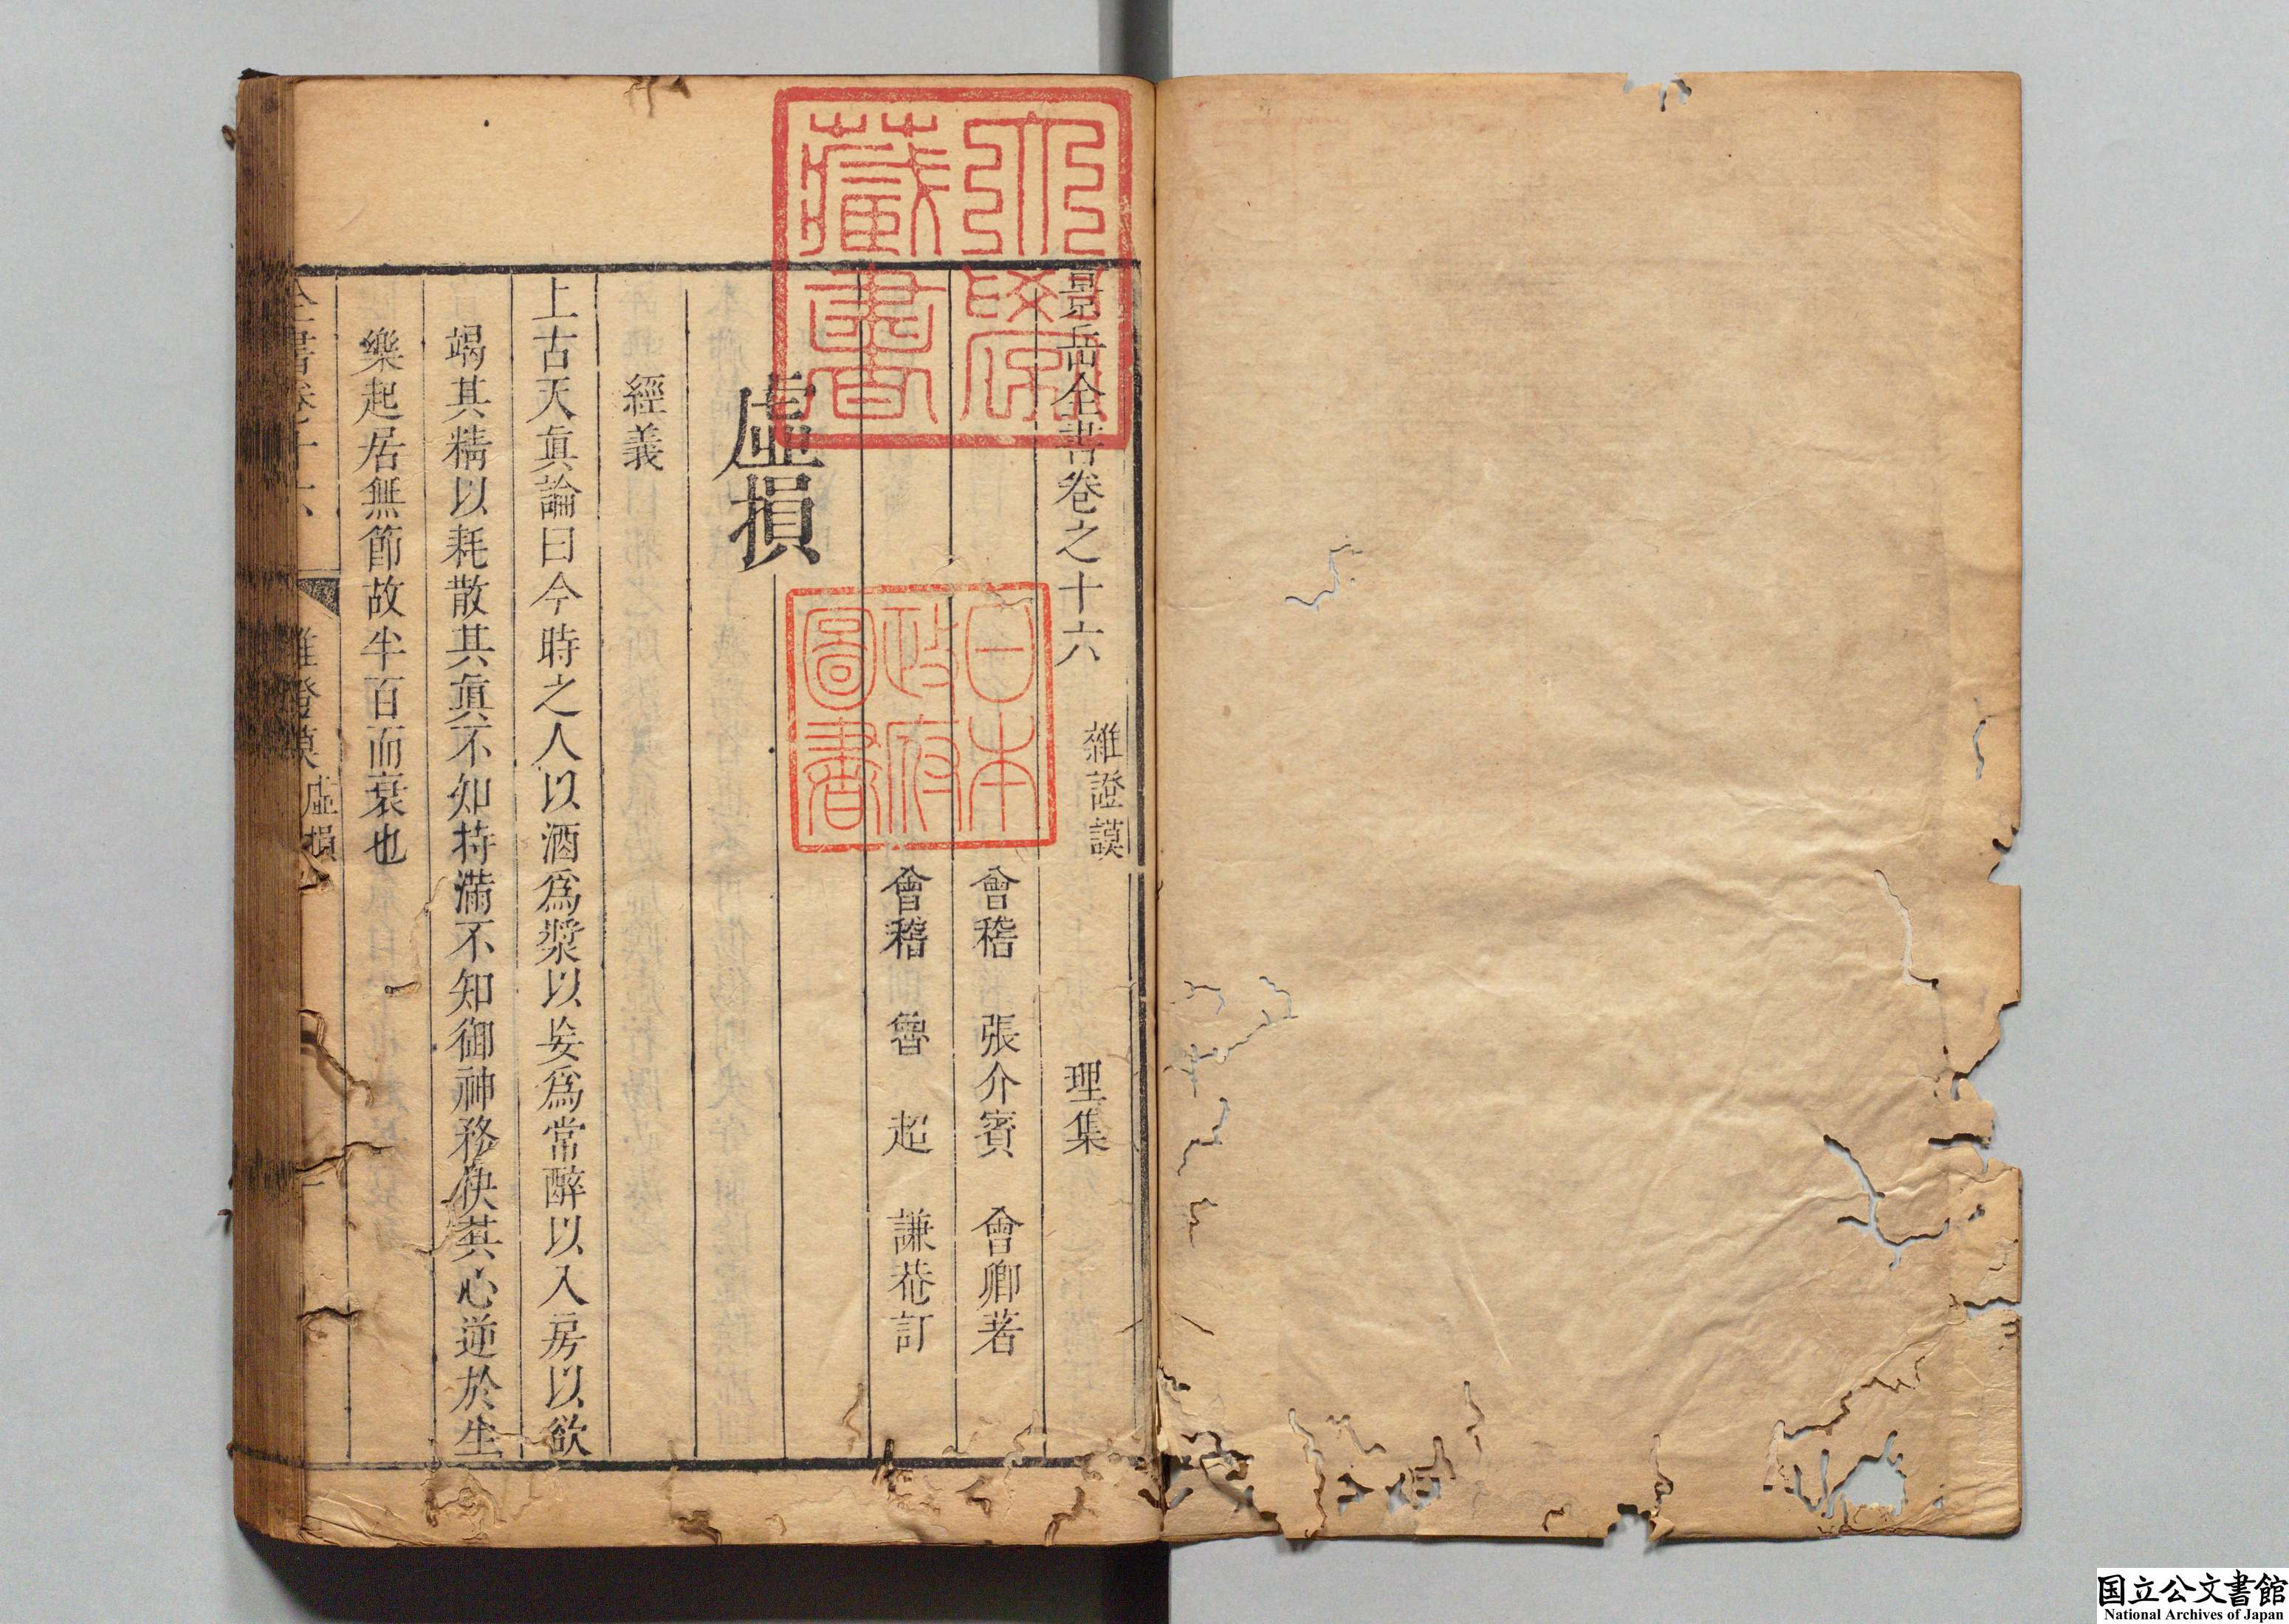 景岳全書卷之十六 雜證謨 理集
會稽 張介賓 會卿著
會稽 魯 超 謙菴訂
虛損
經義
上古天眞論曰今時之人以酒爲漿以妄爲常醉以入房以欲
竭其精以耗散其眞不知持滿不知御神務快其心逆於生
樂起居無節故半百而衰也
全書卷十六 雜證謨 虛損
醫學
藏書
日本
政府
圖書
国立公文書館
National Archives of Japan